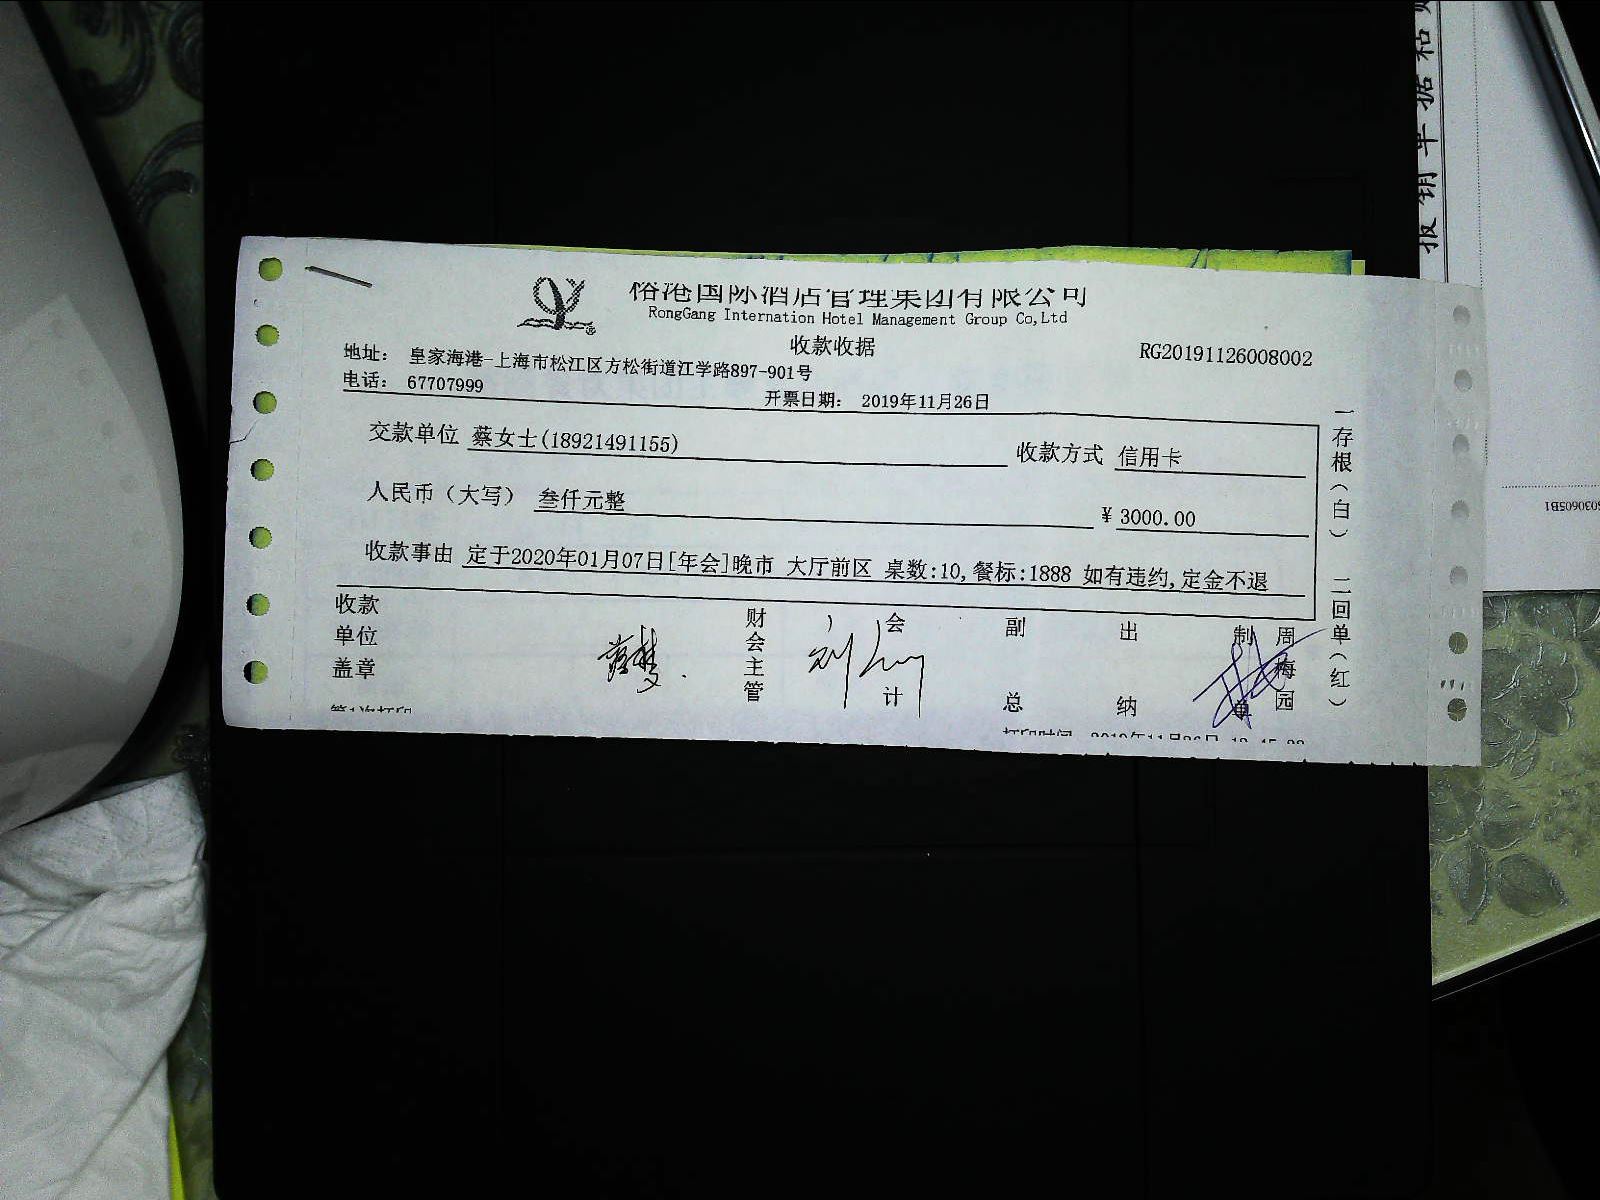 裕港国际酒店管理集团有限公司
RongGang Internation Hotel Management Group Co,Ltd
收款收据
RG20191126008002
地址： 皇家海港-上海市松江区方松街道江学路897-901号
电话： 67707999
开票日期： 2019年11月26日
交款单位 蔡女士(18921491155) 收款方式 信用卡
人民币（大写） 叁仟元整 ¥ 3000.00
收款事由 定于2020年01月07日[年会]晚市 大厅前区 桌数:10,餐标:1888 如有违约,定金不退
收款单位盖章
财会主管
会计
副总
出纳
制单
周梅园
一存根（白） 二回单（红）
第1次打印
打印时间 2019年11月26日
报销单据粘